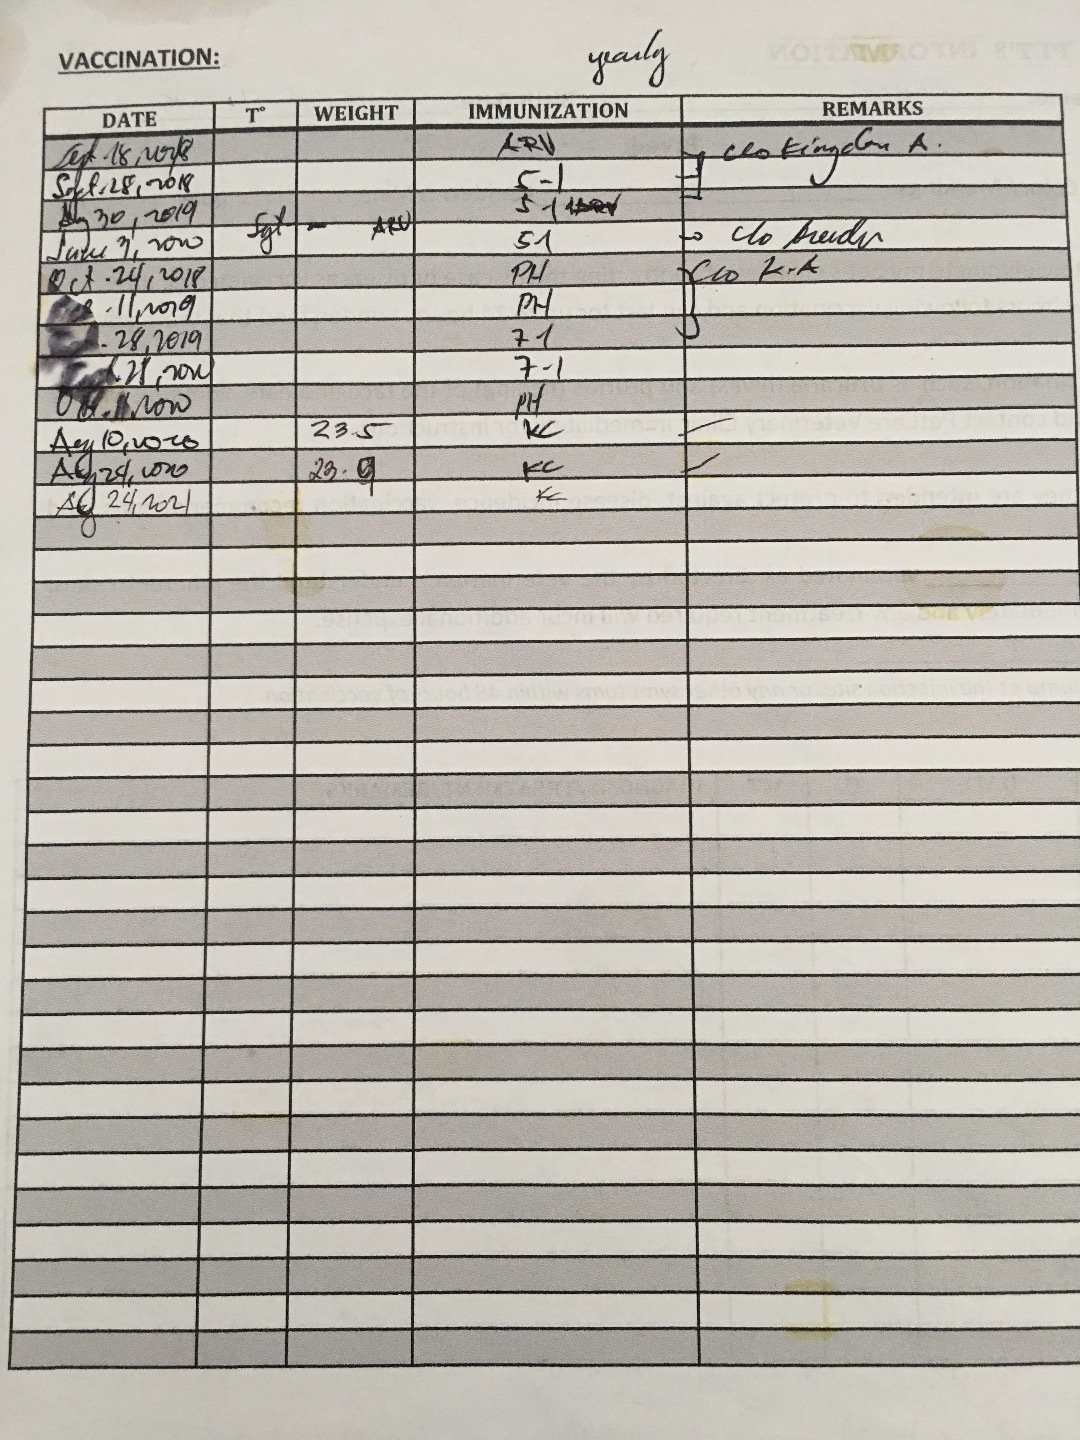 VACCINATION:
yearly
DATE T° WEIGHT IMMUNIZATION REMARKS
Sept. 18, 2018 ARV c/o Kingdom A.
Sept. 28, 2018 5-1
30, 2019 5-1
Sept - ARV
June 3, 2020 51 c/o breeder
Oct. 24, 2018 PH c/o K.A
. 11, 2019 PH
. 28, 2019 7-1
. 28, 2020 7-1
Oct. 11, 2020 PH
Aug 10, 2020 23.5 KC
Aug 24, 2020 23.9 KC
Aug 24, 2021 KC